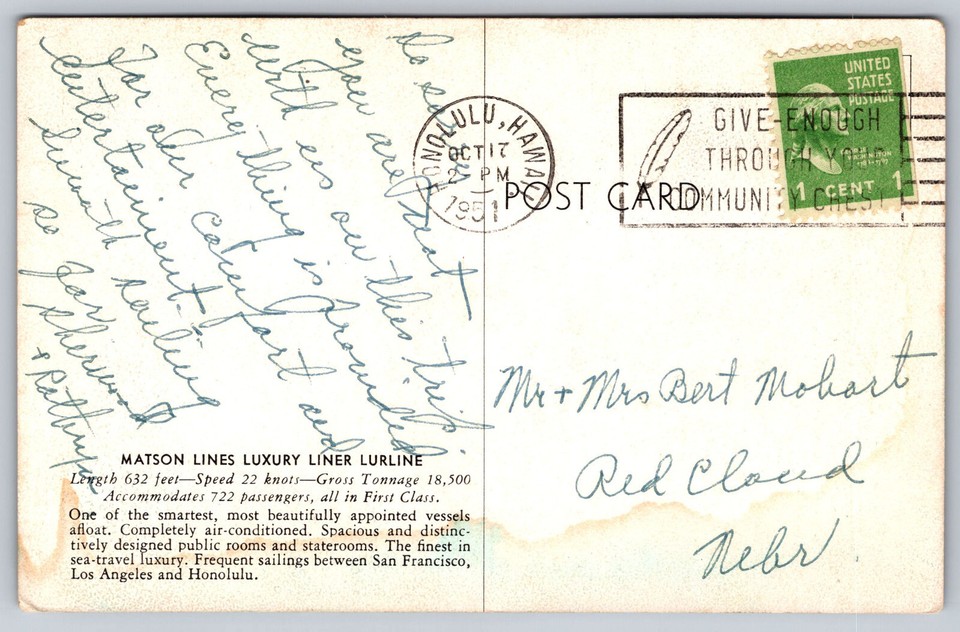 Do
you are
with us on this trip.
Everything is provided
for our comfort and
entertainment.
Smooth sailing
so far
Sherwood
+ Kathryn
MATSON LINES LUXURY LINER LURLINE
Length 632 feet—Speed 22 knots—Gross Tonnage 18,500
Accommodates 722 passengers, all in First Class.
One of the smartest, most beautifully appointed vessels
afloat. Completely air-conditioned. Spacious and distinc-
tively designed public rooms and staterooms. The finest in
sea-travel luxury. Frequent sailings between San Francisco,
Los Angeles and Honolulu.
HONOLULU, HAWAII
OCT 17
2 PM
1951
POST CARD
GIVE-ENOUGH
THROUGH YOUR
COMMUNITY CHEST
UNITED
STATES
POSTAGE
GEORGE
WASHINGTON
1 CENT 1
Mr + Mrs Bert Mohart
Red Cloud
Nebr